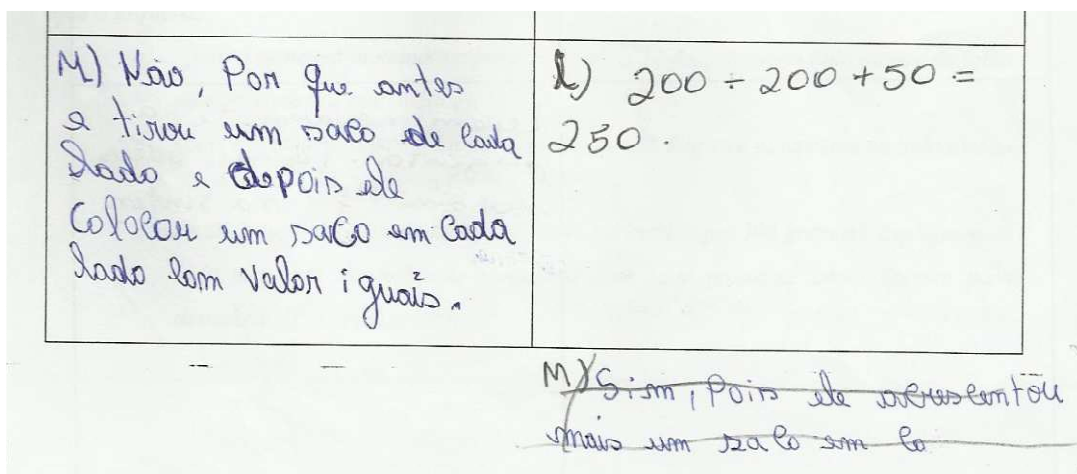 M) Não, Por que antes
e tirou um saco de cada
lado e depois ele
colocou um saco em cada
lado com valor iguais.
l) 200 ÷ 200 + 50 =
250.
M) Sim, Pois ele acrescentou
mais um saco em ca